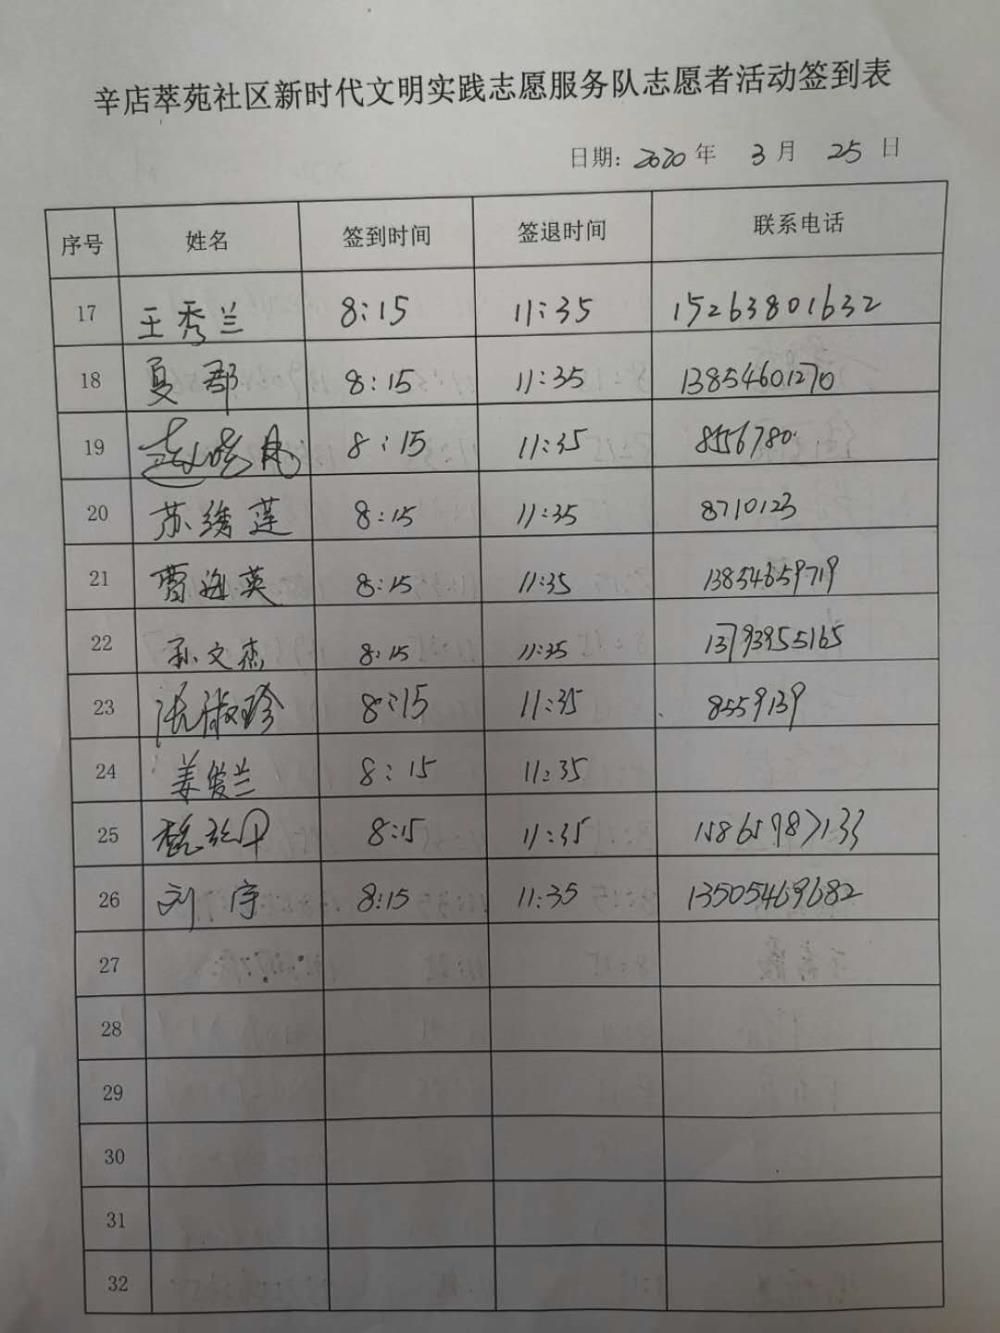 辛店萃苑社区新时代文明实践志愿服务队志愿者活动签到表
日期: 2020 年 3 月 25 日
序号 姓名 签到时间 签退时间 联系电话
17 王秀兰 8:15 11:35 15263801632
18 夏郡 8:15 11:35 13854601270
19 赵晓 8:15 11:35 8556780
20 苏绣莲 8:15 11:35 8710123
21 曹海英 8:15 11:35 13854659719
22 孙文杰 8:15 11:35 13793955165
23 张淑珍 8:15 11:35 8559139
24 姜爱兰 8:15 11:35
25 8:15 11:35 15865987133
26 刘宇 8:15 11:35 13505469682
27
28
29
30
31
32